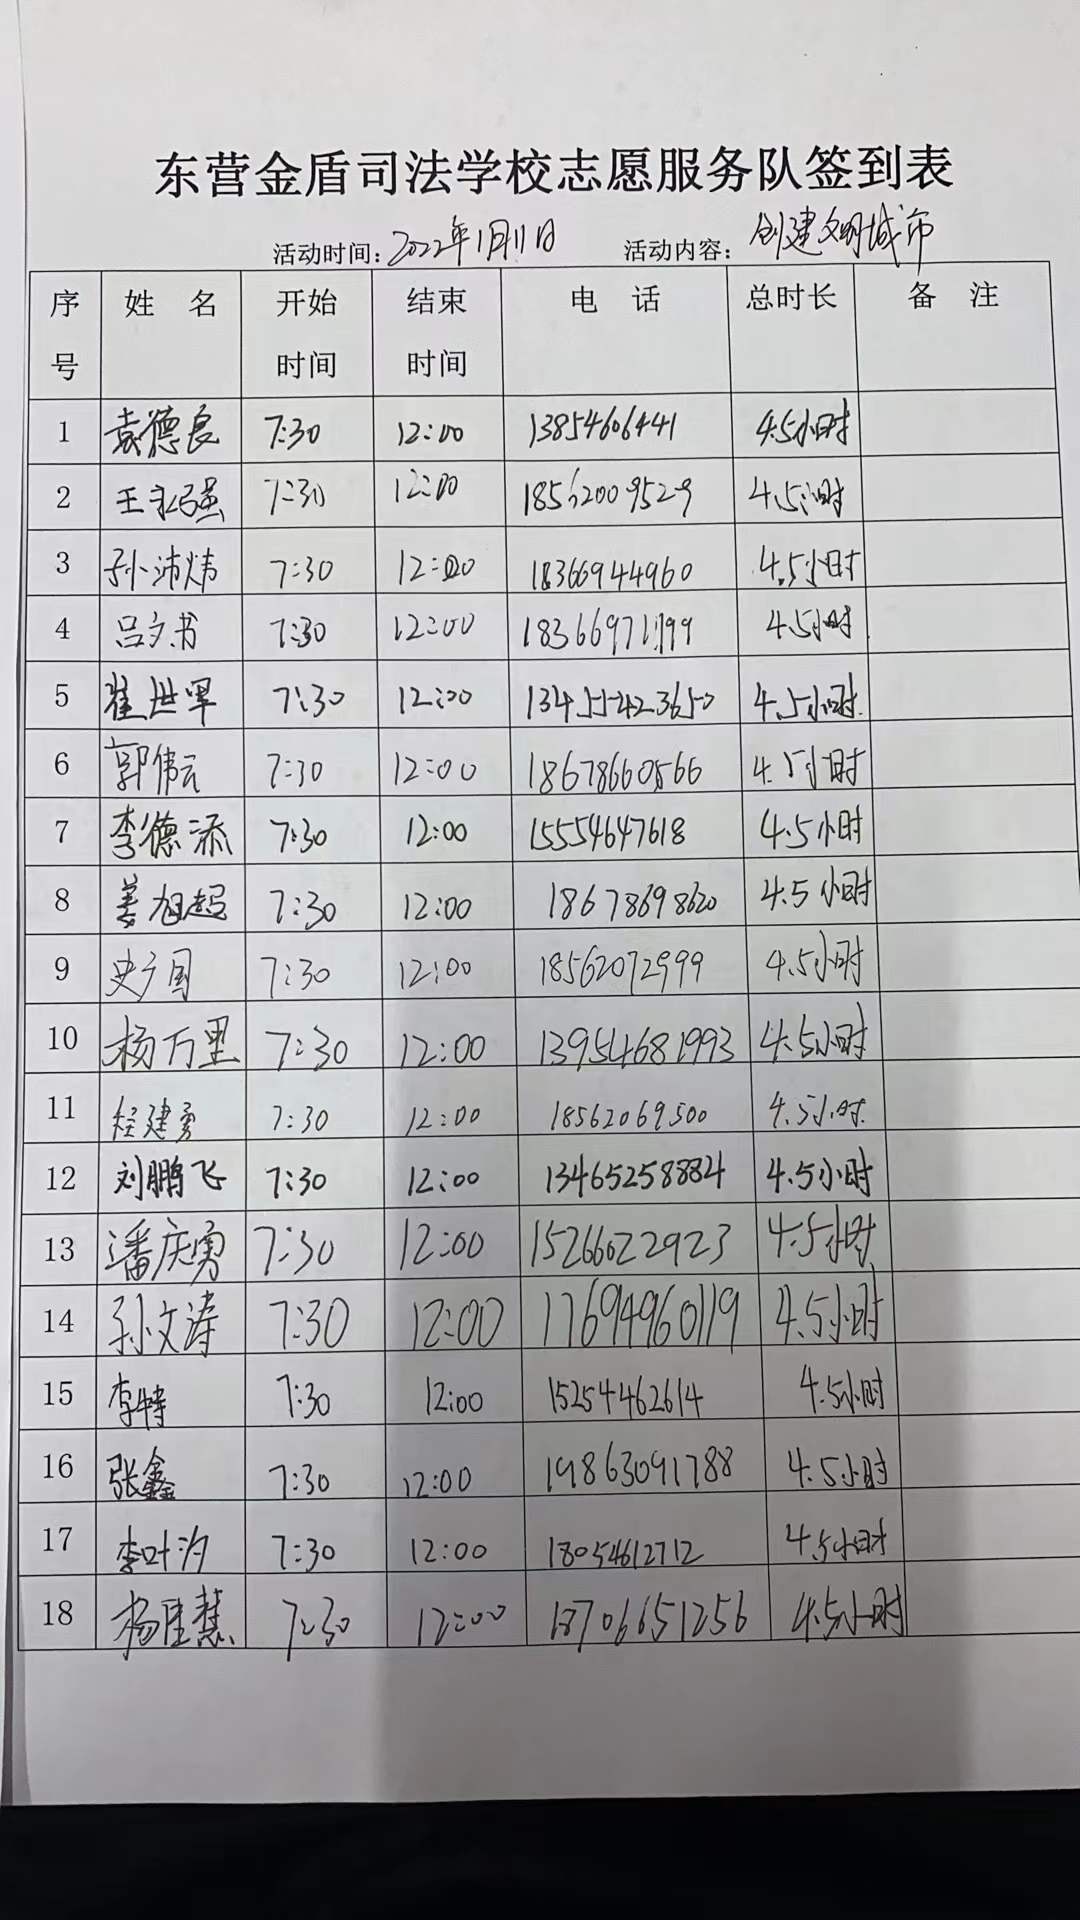 东营金盾司法学校志愿服务队签到表
活动时间：2022年1月11日 活动内容：创建文明城市
序号 姓名 开始时间 结束时间 电话 总时长 备注
1 袁德良 7:30 12:00 13854606441 4.5小时
2 王永强 7:30 12:00 18562009529 4.5小时
3 孙沛炜 7:30 12:00 18366944960 4.5小时
4 吕文书 7:30 12:00 18366971799 4.5小时
5 崔世军 7:30 12:00 13455423650 4.5小时
6 郭伟云 7:30 12:00 18678660566 4.5小时
7 李德添 7:30 12:00 15554647618 4.5小时
8 姜旭超 7:30 12:00 18678698620 4.5小时
9 史广国 7:30 12:00 18562072999 4.5小时
10 杨万里 7:30 12:00 13954681993 4.5小时
11 建勇 7:30 12:00 18562069500 4.5小时
12 刘鹏飞 7:30 12:00 13465258884 4.5小时
13 潘庆勇 7:30 12:00 15266022923 4.5小时
14 孙文涛 7:30 12:00 17694960119 4.5小时
15 李特 7:30 12:00 15254462614 4.5小时
16 张鑫 7:30 12:00 19863091788 4.5小时
17 李叶汐 7:30 12:00 18054612712 4.5小时
18 杨佳慧 7:30 12:00 18706651256 4.5小时